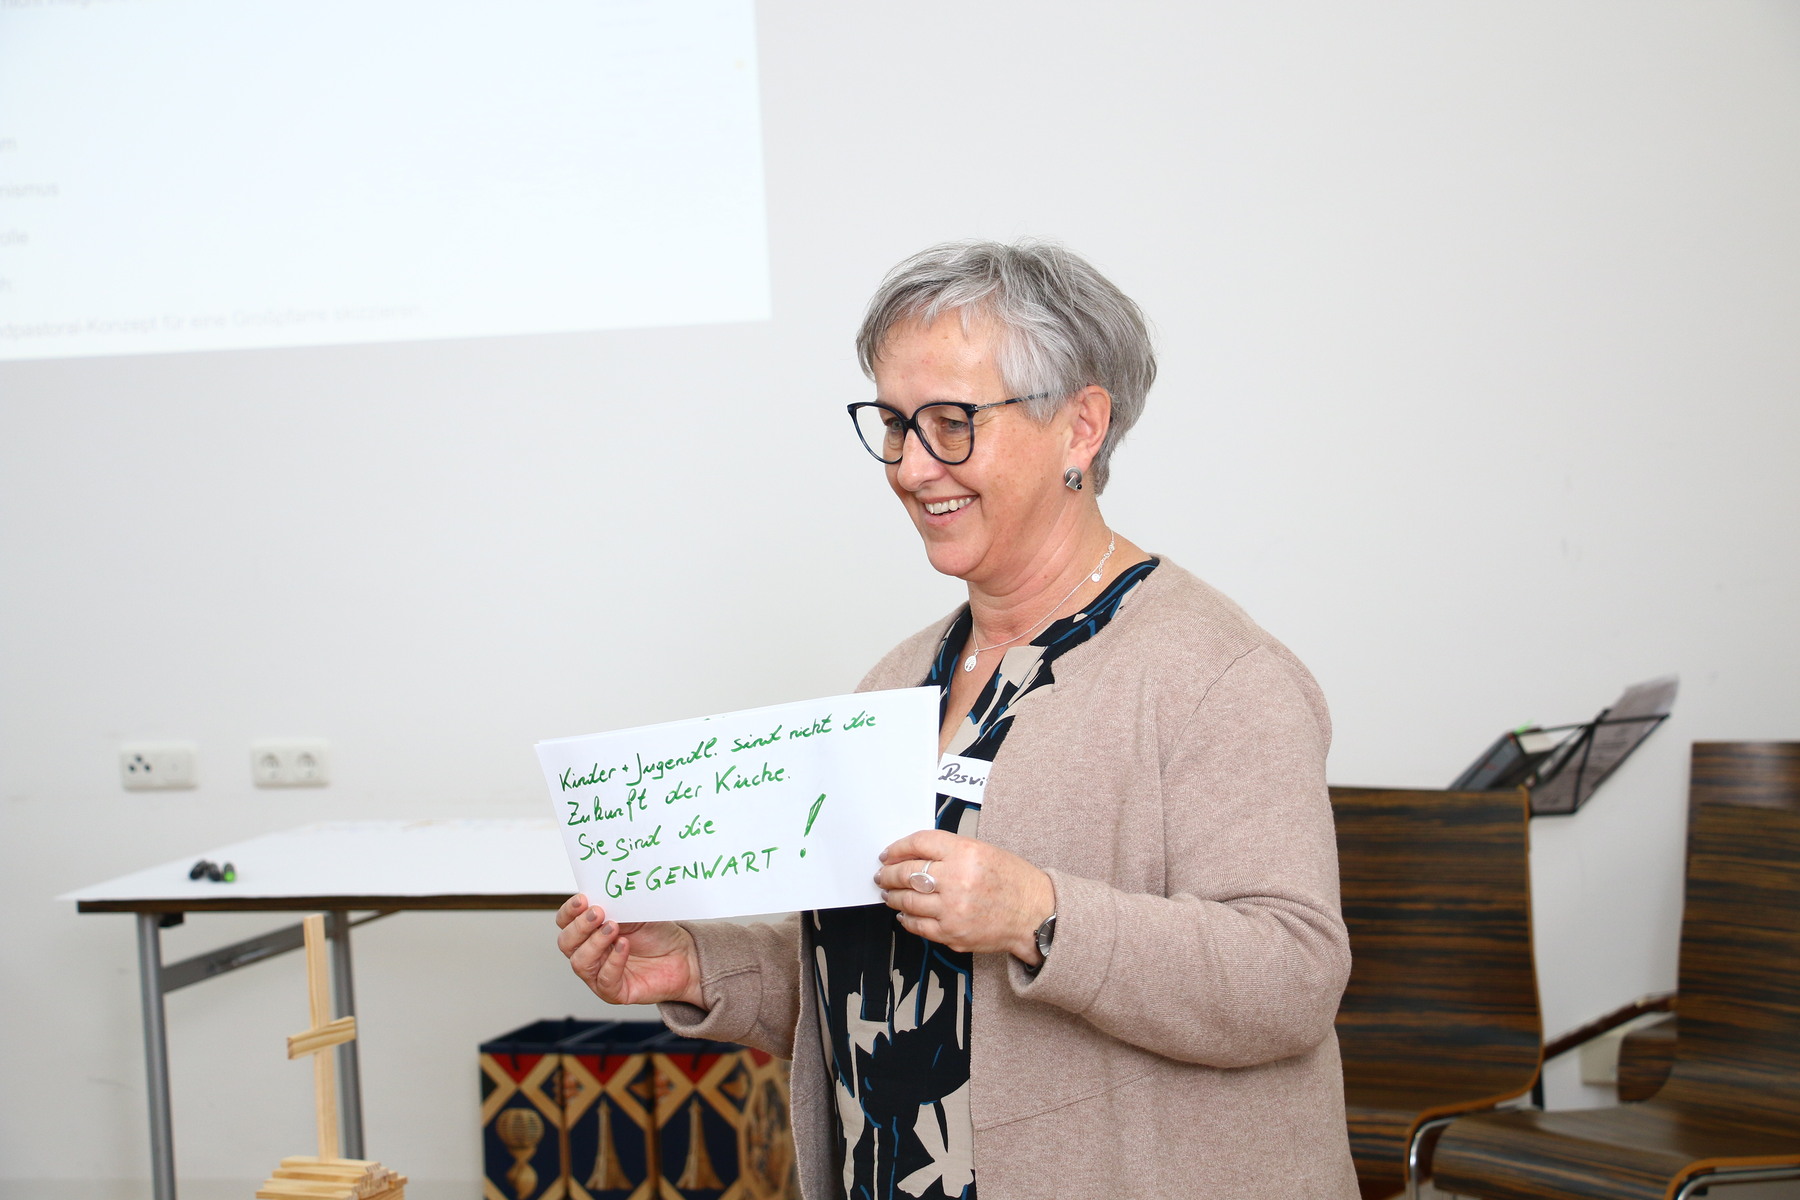 nismus
dpastoral-Konzept für eine Großpfarre skizzieren.
Kinder + Jugendl. sind nicht die
Zukunft der Kirche.
Sie sind die
GEGENWART!